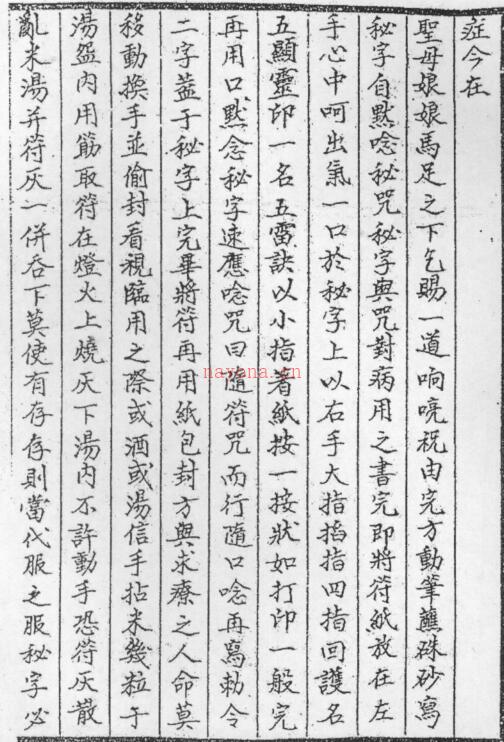 症今在
聖母娘娘馬足之下乞賜一道响喨祝由完方動筆蘸硃砂寫
秘字自默唸秘咒秘字與咒對病用之書完即將符紙放在左
手心中呵出氣一口於秘字上以右手大指掐指四指回護名
五顯靈印一名五雷訣以小指着紙按一按狀如打印一般完
再用口默念秘字速應唸咒曰隨符咒而行隨口唸再寫勅令
二字蓋于秘字上完畢將符再用紙包封方與求療之人命莫
移動換手並偷封看視臨用之際或酒或湯信手拈米幾粒于
湯盌內用筯取符在燈火上燒灰下湯內不許動手恐符灰散
亂米湯并符灰一併吞下莫使有存存則當代服之服秘字必
nayona.cn